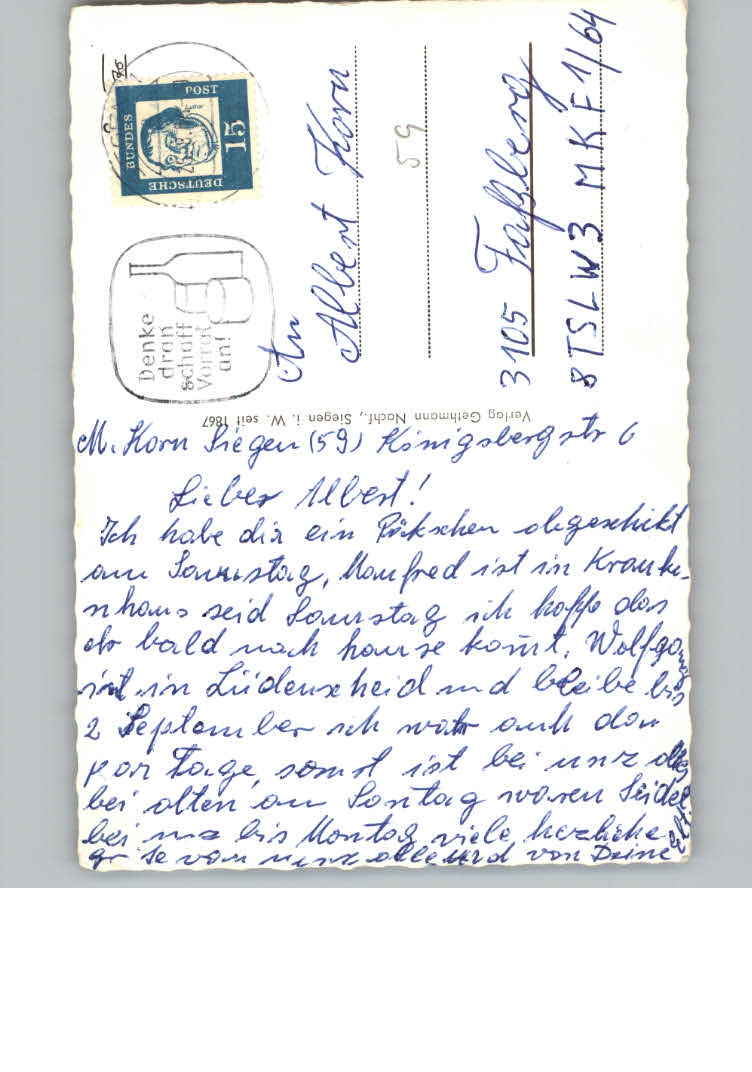 DEUTSCHE
BUNDES
POST
15
Luther
Denke
dran
schaff
Vorrat
an!
An
Albert Korn
59
3105 Faßberg
8TSLW3 MKF 1/64
Verlag Gethmann Nachf., Siegen i. W. seit 1867
M. Korn Siegen (59) Königsbergstr 6
Lieber Albert!
Ich habe dir ein Päkschen abgeschikt
am Samstag, Manfred ist in Kranke-
nhaus seid Samstag ich hoffe das
er bald nach hause komt. Wolfgang
ist in Lüdenscheid und bleibe bis
2 September ich war auch da
par Tage, sonst ist bei unz alles
bei alten, an Sontag waren Seidel
bei unz bis Montag viele herzliche
von unz alle und von Deine
Elt.